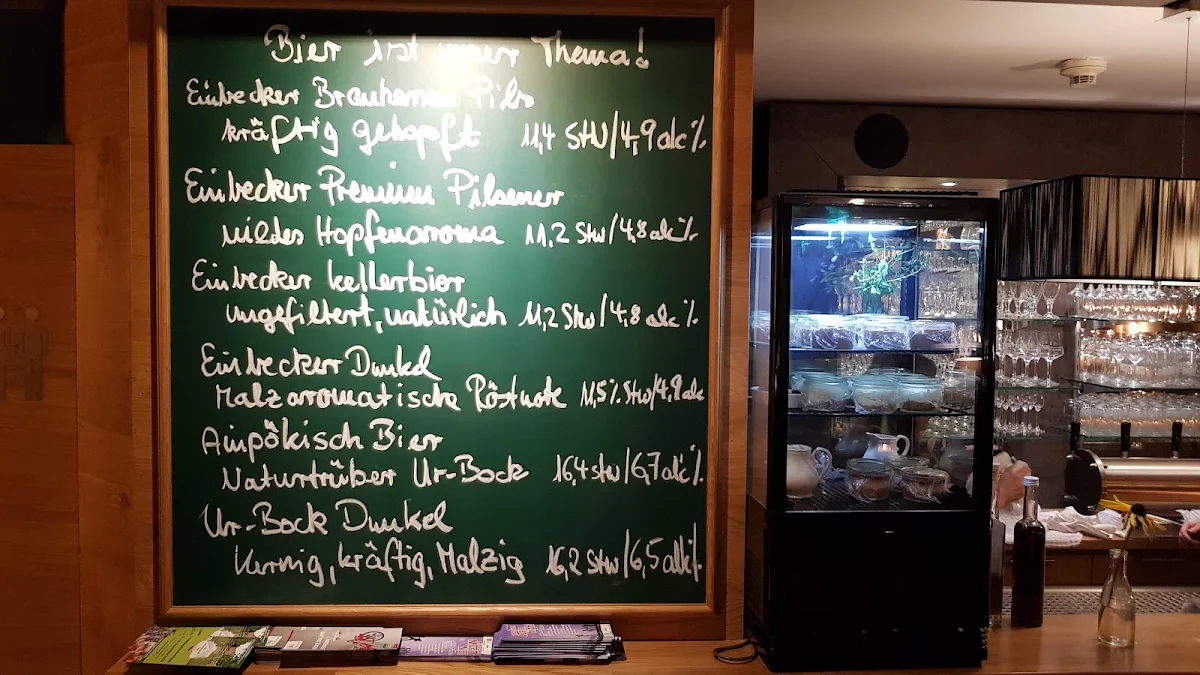 Bier ist unser Thema!
Einbecker Brauherren Pils
kräftig gehopft 11,4 StW/4,9 alc%
Einbecker Premium Pilsener
mildes Hopfenaroma 11,2 Stw/4,8 alc%
Einbecker Kellerbier
ungefiltert, natürlich 11,2 Stw/4,8 alc%
Einbecker Dunkel
Malzaromatische Röstnote 11,5% Stw/4,9 alc
Ainpökisch Bier
Naturtrüber Ur-Bock 16,4 stw/6,7 alc%
Ur-Bock Dunkel
Kernig, kräftig, Malzig 16,2 Stw/6,5 alk%